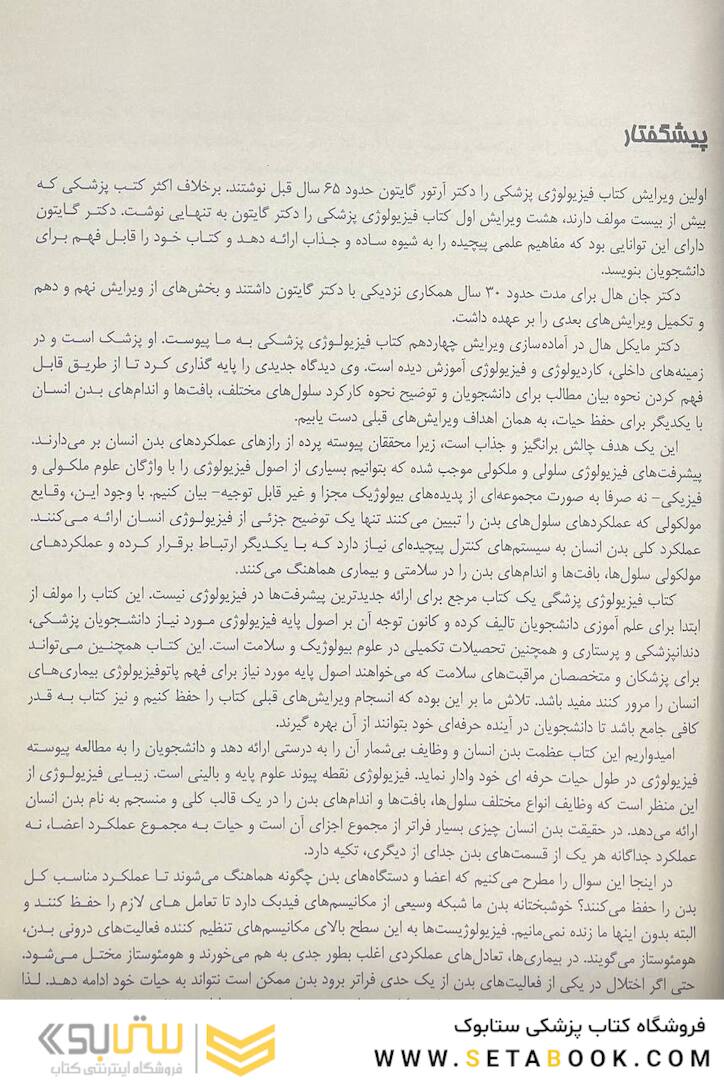 پیشگفتار
اولین ویرایش کتاب فیزیولوژی پزشکی را دکتر آرتور گایتون حدود ۶۵ سال قبل نوشتند. برخلاف اکثر کتب پزشکی که
بیش از بیست مولف دارند، هشت ویرایش اول کتاب فیزیولوژی پزشکی را دکتر گایتون به تنهایی نوشت. دکتر گایتون
دارای این توانایی بود که مفاهیم علمی پیچیده را به شیوه ساده و جذاب ارائه دهد و کتاب خود را قابل فهم برای
دانشجویان بنویسد.
دکتر جان هال برای مدت حدود ۳۰ سال همکاری نزدیکی با دکتر گایتون داشتند و بخش‌های از ویرایش نهم و دهم
و تکمیل ویرایش‌های بعدی را بر عهده داشت.
دکتر مایکل هال در آماده‌سازی ویرایش چهاردهم کتاب فیزیولوژی پزشکی به ما پیوست. او پزشک است و در
زمینه‌های داخلی، کاردیولوژی و فیزیولوژی آموزش دیده است. وی دیدگاه جدیدی را پایه گذاری کرد تا از طریق قابل
فهم کردن نحوه بیان مطالب برای دانشجویان و توضیح نحوه کارکرد سلول‌های مختلف، بافت‌ها و اندام‌های بدن انسان
با یکدیگر برای حفظ حیات، به همان اهداف ویرایش‌های قبلی دست یابیم.
این یک هدف چالش برانگیز و جذاب است، زیرا محققان پیوسته پرده از رازهای عملکردهای بدن انسان بر می‌دارند.
پیشرفت‌های فیزیولوژی سلولی و ملکولی موجب شده که بتوانیم بسیاری از اصول فیزیولوژی را با واژگان علوم ملکولی و
فیزیکی- نه صرفا به صورت مجموعه‌ای از پدیده‌های بیولوژیک مجزا و غیر قابل توجیه- بیان کنیم. با وجود این، وقایع
مولکولی که عملکردهای سلول‌های بدن را تبیین می‌کنند تنها یک توضیح جزئی از فیزیولوژی انسان ارائه می‌کنند.
عملکرد کلی بدن انسان به سیستم‌های کنترل پیچیده‌ای نیاز دارد که با یکدیگر ارتباط برقرار کرده و عملکردهای
مولکولی سلول‌ها، بافت‌ها و اندام‌های بدن را در سلامتی و بیماری هماهنگ می‌کنند.
کتاب فیزیولوژی پزشگی یک کتاب مرجع برای ارائه جدیدترین پیشرفت‌ها در فیزیولوژی نیست. این کتاب را مولف از
ابتدا برای علم آموزی دانشجویان تالیف کرده و کانون توجه آن بر اصول پایه فیزیولوژی مورد نیاز دانشجویان پزشکی،
دندانپزشکی و پرستاری و همچنین تحصیلات تکمیلی در علوم بیولوژیک و سلامت است. این کتاب همچنین می‌تواند
برای پزشکان و متخصصان مراقبت‌های سلامت که می‌خواهند اصول پایه مورد نیاز برای فهم پاتوفیزیولوژی بیماری‌های
انسان را مرور کنند مفید باشد. تلاش ما بر این بوده که انسجام ویرایش‌های قبلی کتاب را حفظ کنیم و نیز کتاب به قدر
کافی جامع باشد تا دانشجویان در آینده حرفه‌ای خود بتوانند از آن بهره گیرند.
امیدواریم این کتاب عظمت بدن انسان و وظایف بی‌شمار آن را به درستی ارائه دهد و دانشجویان را به مطالعه پیوسته
فیزیولوژی در طول حیات حرفه ای خود وادار نماید. فیزیولوژی نقطه پیوند علوم پایه و بالینی است. زیبایی فیزیولوژی از
این منظر است که وظایف انواع مختلف سلول‌ها، بافت‌ها و اندام‌های بدن را در یک قالب کلی و منسجم به نام بدن انسان
ارائه می‌دهد. در حقیقت بدن انسان چیزی بسیار فراتر از مجموع اجزای آن است و حیات به مجموع عملکرد اعضا، نه
عملکرد جداگانه هر یک از قسمت‌های بدن جدای از دیگری، تکیه دارد.
در اینجا این سوال را مطرح می‌کنیم که اعضا و دستگاه‌های بدن چگونه هماهنگ می‌شوند تا عملکرد مناسب کل
بدن را حفظ می‌کنند؟ خوشبختانه بدن ما شبکه وسیعی از مکانیسم‌های فیدبک دارد تا تعامل های لازم را حفظ کنند و
البته بدون اینها ما زنده نمی‌مانیم. فیزیولوژیست‌ها به این سطح بالای مکانیسم‌های تنظیم کننده فعالیت‌های درونی بدن،
هومئوستاز می‌گویند. در بیماری‌ها، تعادل‌های عملکردی اغلب بطور جدی به هم می‌خورند و هومئوستاز مختل می‌شود.
حتی اگر اختلال در یکی از فعالیت‌های بدن از یک حدی فراتر برود بدن ممکن است نتواند به حیات خود ادامه دهد. لذا
فروشگاه کتاب پزشکی ستابوک
WWW.SETABOOK.COM
ستابوک
فروشگاه اینترنتی کتاب